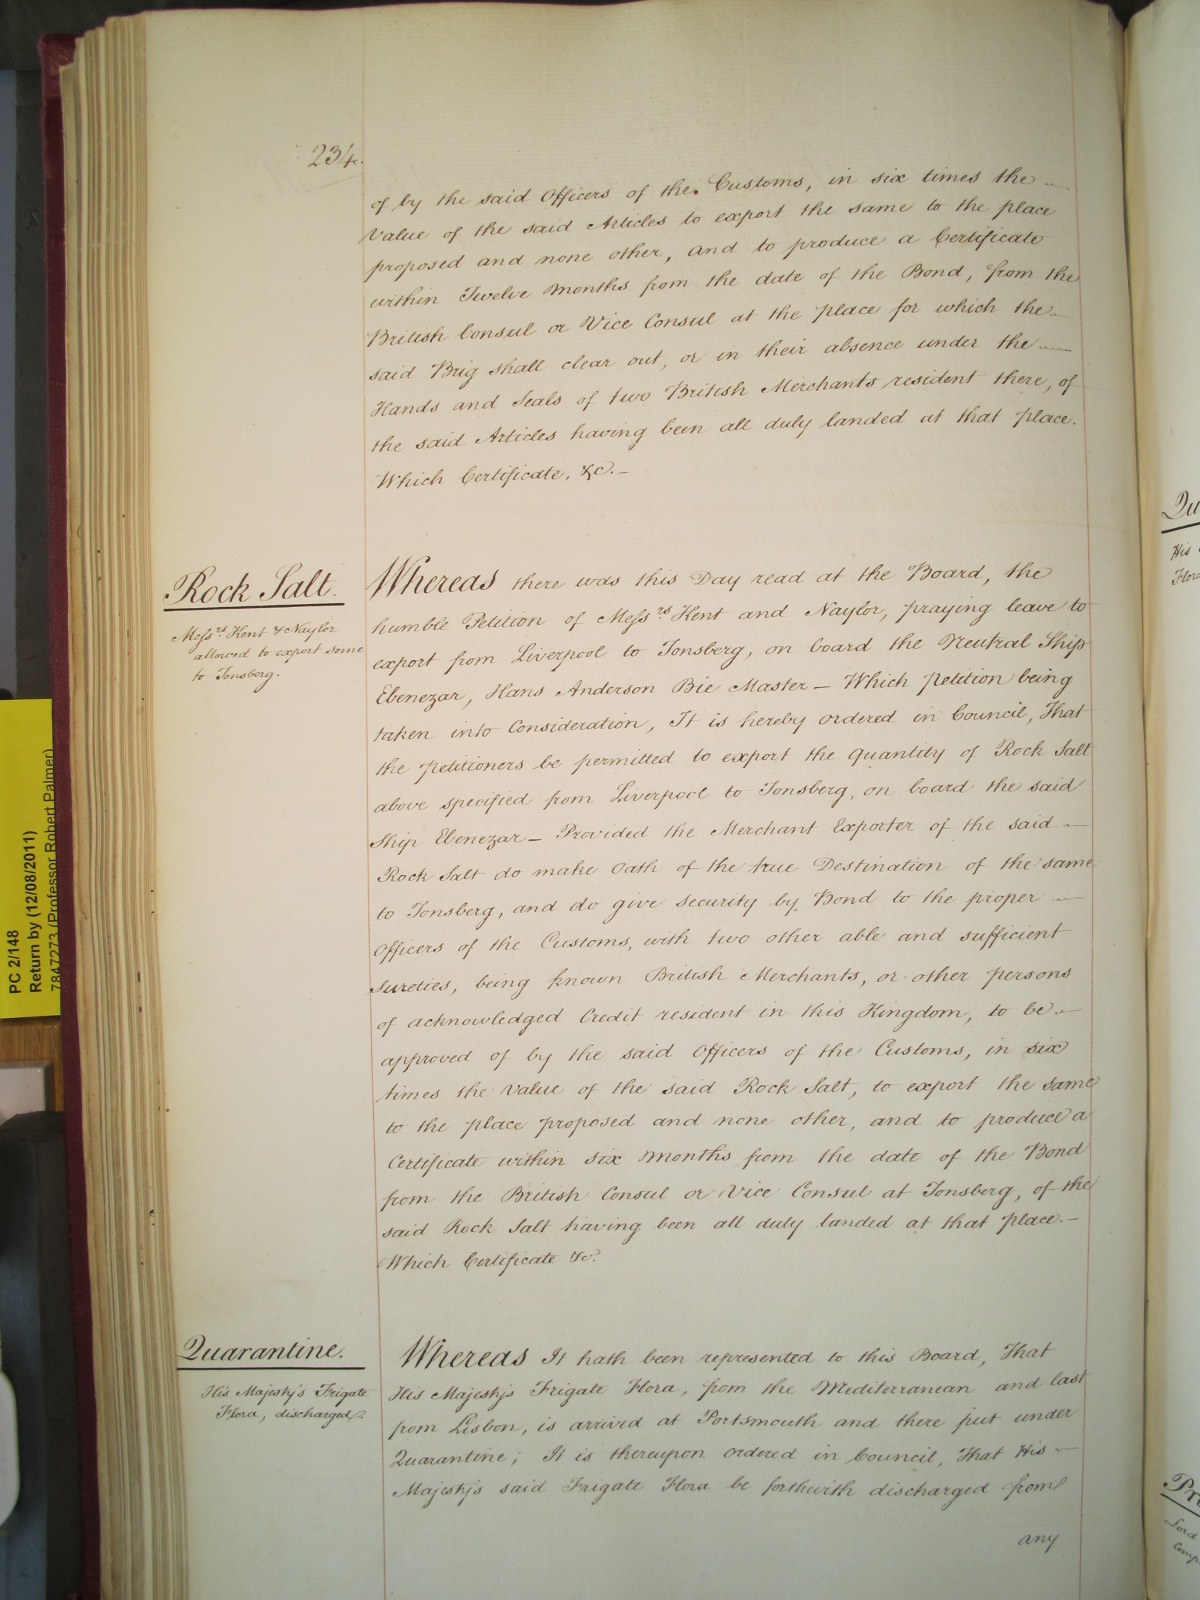 234.
of by the said Officers of the Customs, in six times the
Value of the said Articles to export the same to the place
proposed and none other, and to produce a Certificate
within Twelve Months from the date of the Bond, from the
British Consul or Vice Consul at the place for which the
said Brig shall clear out, or in their absence under the
Hands and Seals of two British Merchants resident there, of
the said Articles having been all duly landed at that place.
Which Certificate, &c. –
Rock Salt.
Messrs Kent & Naylor
allowed to export some
to Tonsberg.
Whereas there was this Day read at the Board, the
humble Petition of Messrs Kent and Naylor, praying leave to
export from Liverpool to Tonsberg, on board the Neutral Ship
Ebenezar, Hans Anderson Bie Master – Which Petition being
taken into Consideration, It is hereby ordered in Council, That
the petitioners be permitted to export the quantity of Rock Salt
above specified from Liverpool to Tonsberg, on board the said
Ship Ebenezar – Provided the Merchant Exporter of the said
Rock Salt do make Oath of the true Destination of the same
to Tonsberg, and do give security by Bond to the proper
Officers of the Customs, with two other able and sufficient
Sureties, being known British Merchants, or other persons
of acknowledged Credit resident in this Kingdom, to be
approved of by the said Officers of the Customs, in six
times the Value of the said Rock Salt, to export the same
to the place proposed and none other, and to produce a
Certificate within six Months from the date of the Bond
from the British Consul or Vice Consul at Tonsberg, of the
said Rock Salt having been all duly landed at that place. –
Which Certificate &c.
Quarantine.
His Majesty's Frigate
Flora, discharged.
Whereas It hath been represented to this Board, That
His Majesty's Frigate Flora, from the Mediterranean and last
from Lisbon, is arrived at Portsmouth and there put under
Quarantine; It is thereupon ordered in Council, That His
Majesty's said Frigate Flora be forthwith discharged from
any
PC 2/148
Return by (12/08/2011)
7847273 (Professor Robert Palmer)
Qu
His
Flora
Pr
Lord
Comp